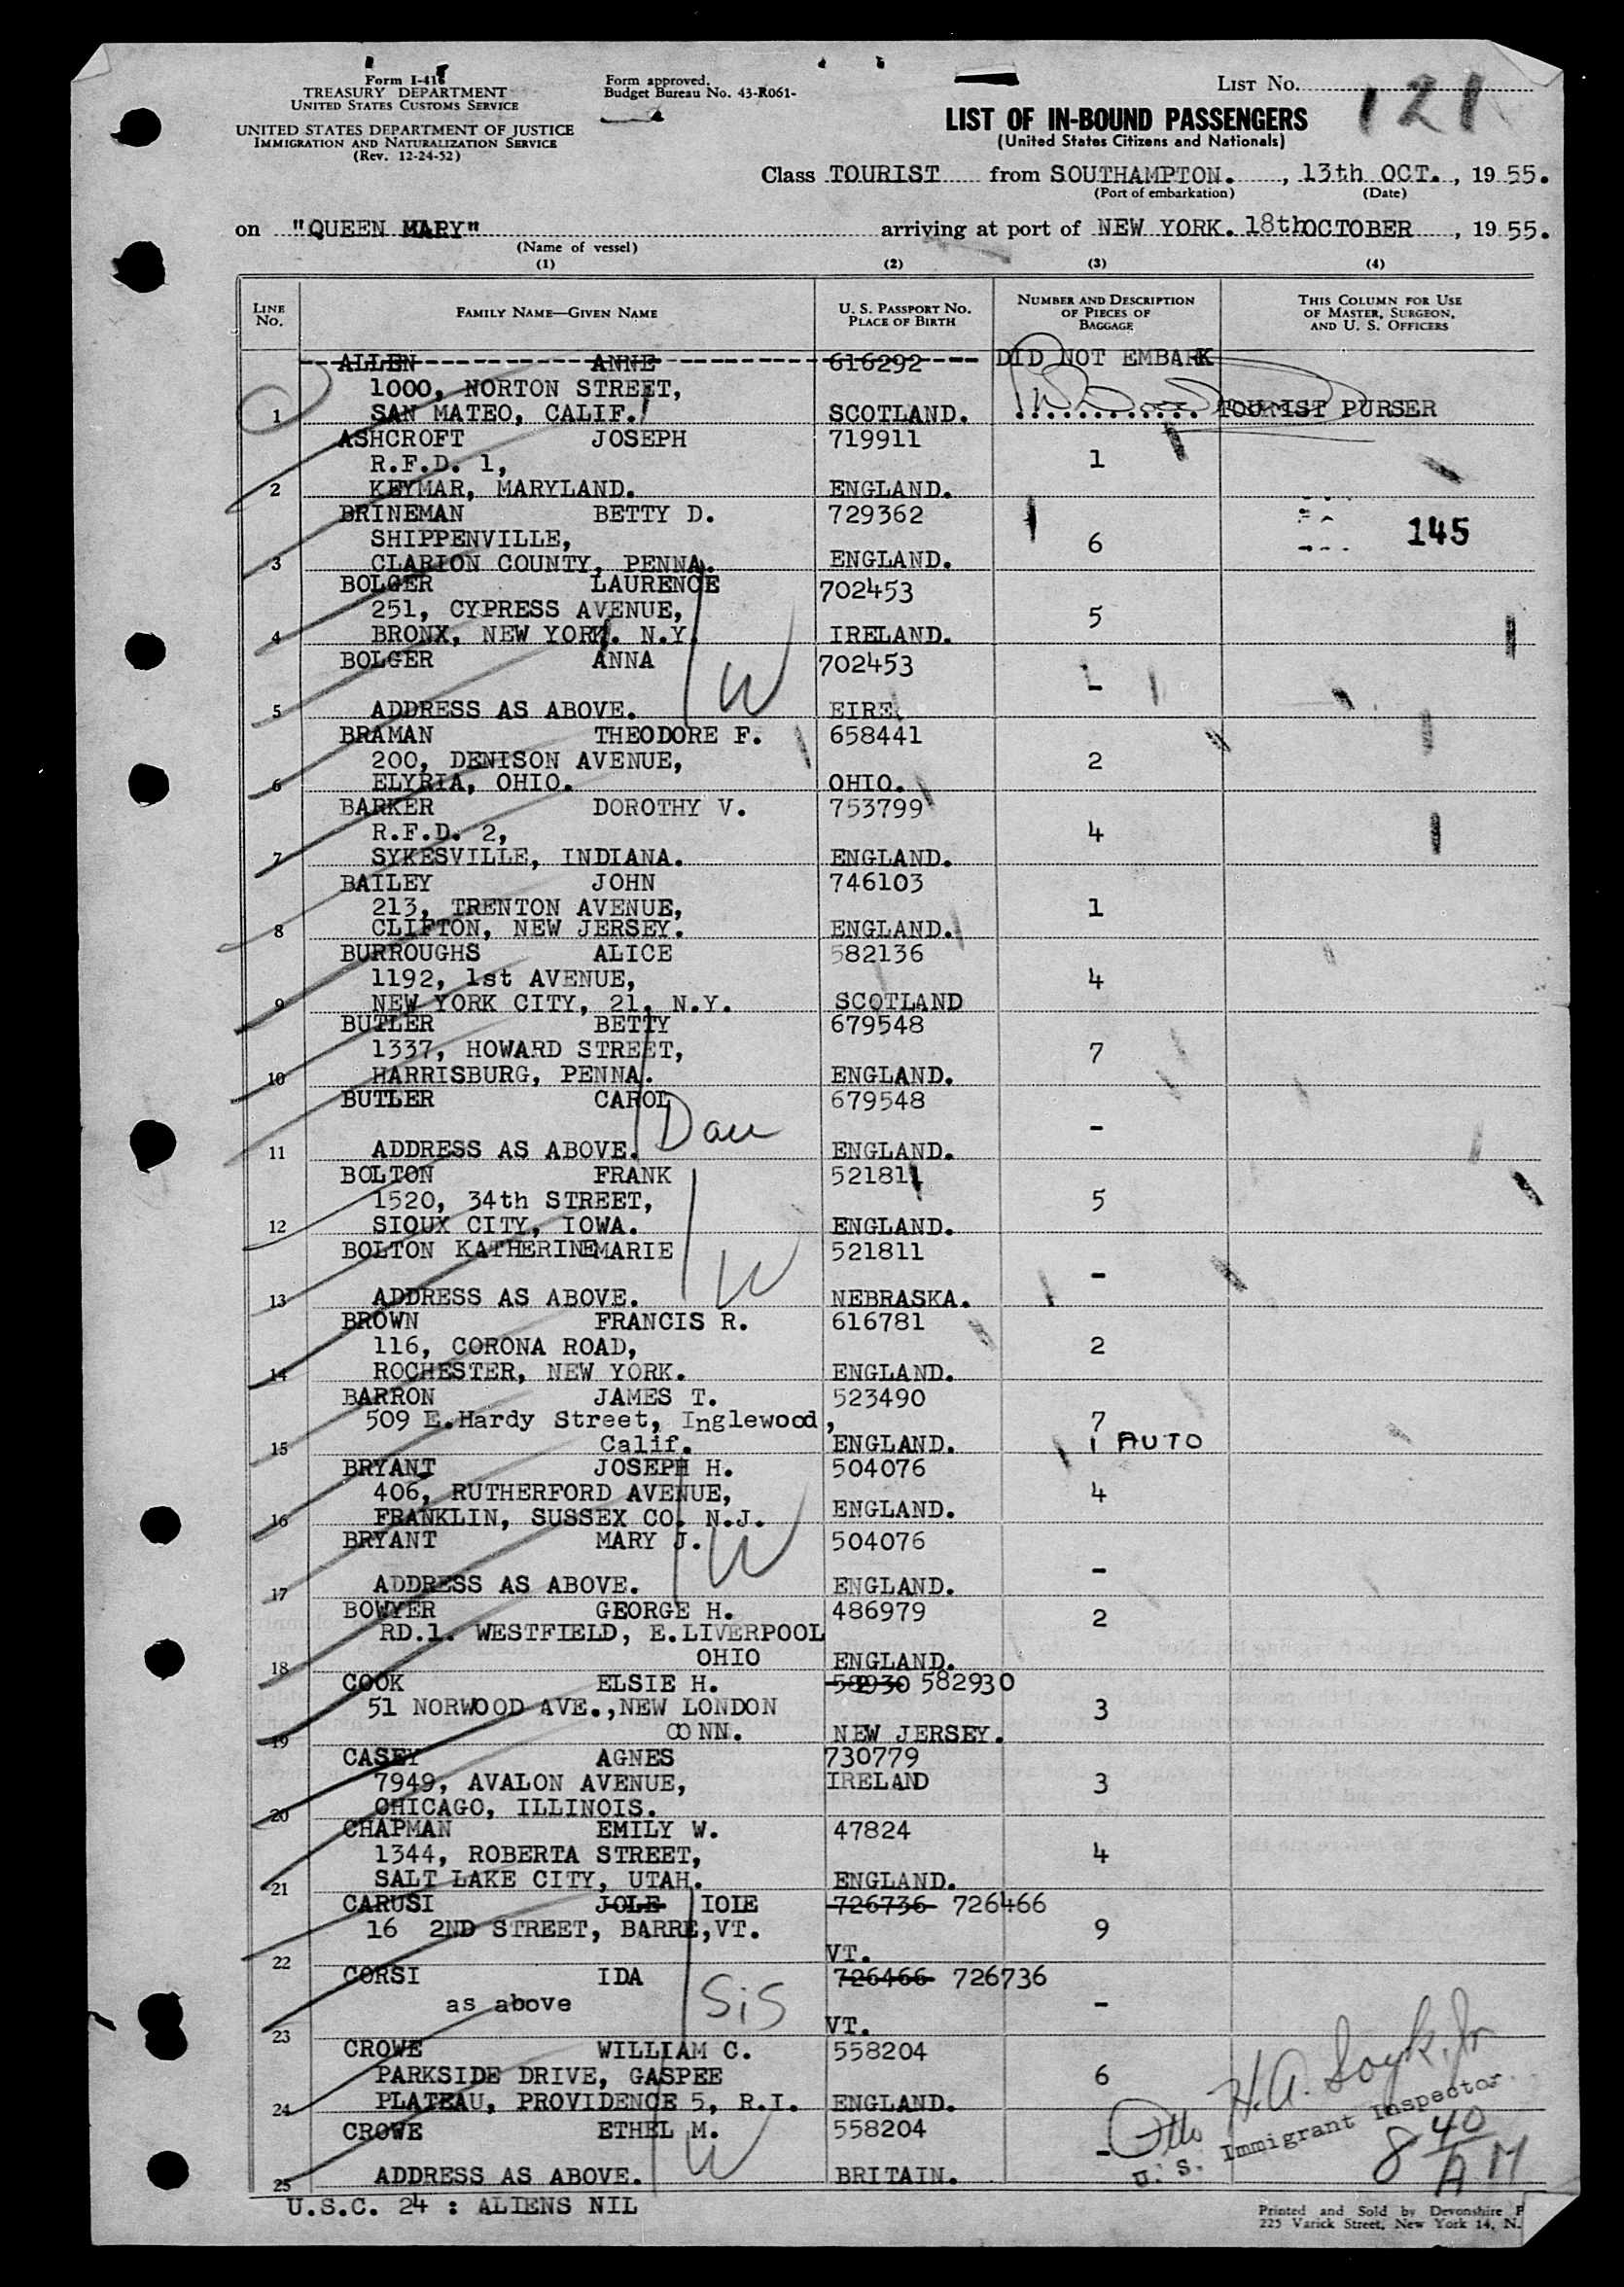 Form I-416
TREASURY DEPARTMENT
UNITED STATES CUSTOMS SERVICE
UNITED STATES DEPARTMENT OF JUSTICE
IMMIGRATION AND NATURALIZATION SERVICE
(Rev. 12-24-52)
Form approved.
Budget Bureau No. 43-R061-
LIST NO. 121
LIST OF IN-BOUND PASSENGERS
(United States Citizens and Nationals)
Class TOURIST from SOUTHAMPTON. , 13th OCT. , 19 55.
(Port of embarkation) (Date)
on "QUEEN MARY" arriving at port of NEW YORK. 18th OCTOBER , 19 55.
(Name of vessel)
(1) (2) (3) (4)
LINE NO. FAMILY NAME—GIVEN NAME U. S. PASSPORT NO. PLACE OF BIRTH NUMBER AND DESCRIPTION OF PIECES OF BAGGAGE THIS COLUMN FOR USE OF MASTER, SURGEON, AND U. S. OFFICERS
ALLEN ANNE 616292 DID NOT EMBARK
1000, NORTON STREET,
1 SAN MATEO, CALIF. SCOTLAND. TOURIST PURSER
ASHCROFT JOSEPH 719911
R.F.D. 1, 1
2 KEYMAR, MARYLAND. ENGLAND.
BRINEMAN BETTY D. 729362
SHIPPENVILLE, 6 145
3 CLARION COUNTY, PENNA. ENGLAND.
BOLGER LAURENCE 702453
251, CYPRESS AVENUE, 5
4 BRONX, NEW YORK. N.Y. IRELAND.
BOLGER ANNA 702453
W -
5 ADDRESS AS ABOVE. EIRE.
BRAMAN THEODORE F. 658441
200, DENISON AVENUE, 2
6 ELYRIA, OHIO. OHIO.
BARKER DOROTHY V. 753799
R.F.D. 2, 4
7 SYKESVILLE, INDIANA. ENGLAND.
BAILEY JOHN 746103
213, TRENTON AVENUE, 1
8 CLIFTON, NEW JERSEY. ENGLAND.
BURROUGHS ALICE 582136
1192, 1st AVENUE, 4
9 NEW YORK CITY, 21, N.Y. SCOTLAND
BUTLER BETTY 679548
1337, HOWARD STREET, 7
10 HARRISBURG, PENNA. ENGLAND.
BUTLER CAROL 679548
Dau -
11 ADDRESS AS ABOVE. ENGLAND.
BOLTON FRANK 521811
1520, 34th STREET, 5
12 SIOUX CITY, IOWA. ENGLAND.
BOLTON KATHERINE MARIE 521811
W -
13 ADDRESS AS ABOVE. NEBRASKA.
BROWN FRANCIS R. 616781
116, CORONA ROAD, 2
14 ROCHESTER, NEW YORK. ENGLAND.
BARRON JAMES T. 523490
509 E.Hardy Street, Inglewood, 7
15 Calif. ENGLAND. 1 AUTO
BRYANT JOSEPH H. 504076
406, RUTHERFORD AVENUE, 4
16 FRANKLIN, SUSSEX CO. N.J. ENGLAND.
BRYANT MARY J. 504076
W -
17 ADDRESS AS ABOVE. ENGLAND.
BOWYER GEORGE H. 486979 2
RD.1. WESTFIELD, E.LIVERPOOL
18 OHIO ENGLAND.
COOK ELSIE H. 58930 582930
51 NORWOOD AVE.,NEW LONDON 3
19 CONN. NEW JERSEY.
CASEY AGNES 730779
7949, AVALON AVENUE, IRELAND 3
20 CHICAGO, ILLINOIS.
CHAPMAN EMILY W. 47824
1344, ROBERTA STREET, 4
21 SALT LAKE CITY, UTAH. ENGLAND.
CARUSI JOLE IOIE 726736 726466
16 2ND STREET, BARRE,VT. 9
22 VT.
CORSI IDA 726466 726736
as above Sis -
23 VT.
CROWE WILLIAM C. 558204
PARKSIDE DRIVE, GASPEE 6
24 PLATEAU, PROVIDENCE 5, R.I. ENGLAND.
CROWE ETHEL M. 558204
W -
25 ADDRESS AS ABOVE. BRITAIN.
U. S. Immigrant Inspector
8 40 AM
U.S.C. 24 : ALIENS NIL
Printed and Sold by Devonshire P
225 Varick Street, New York 14, N.